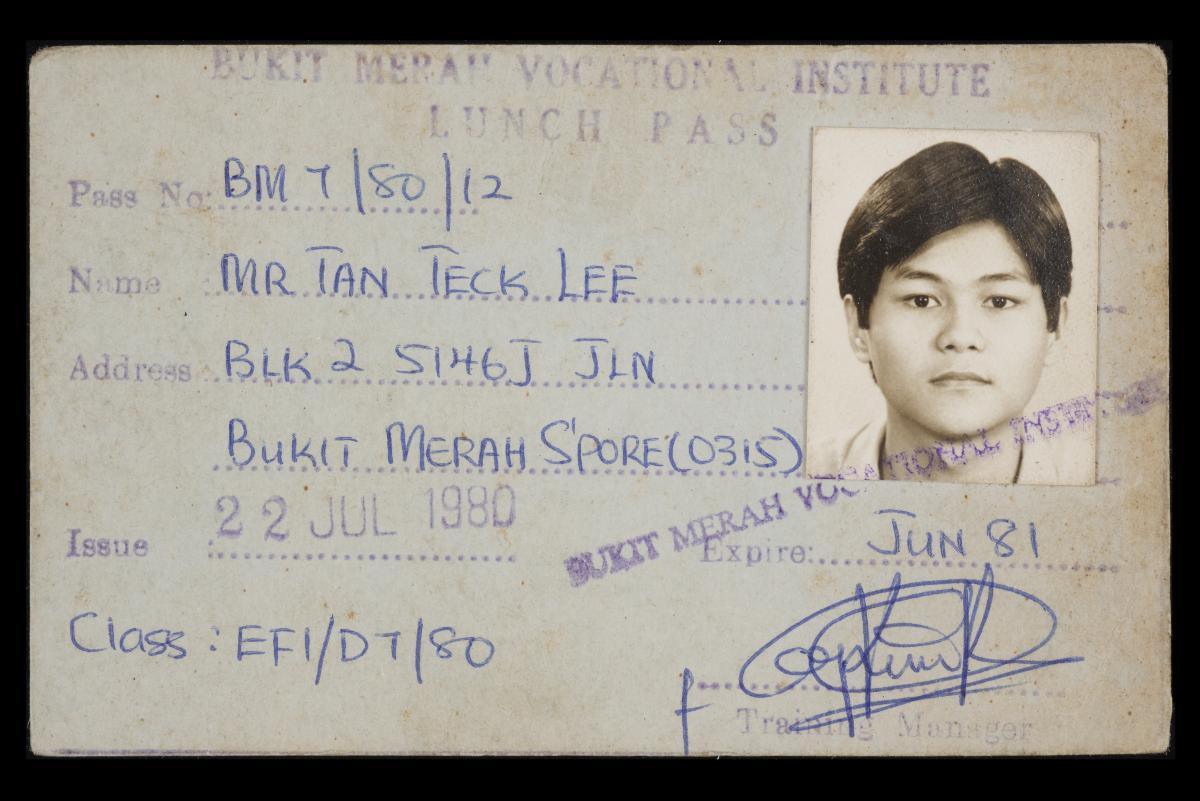 BUKIT MERAH VOCATIONAL INSTITUTE
LUNCH PASS
Pass No: BM 7/80/12
Name : MR TAN TECK LEE
Address : BLK 2 5146J JLN
BUKIT MERAH S'PORE(0315)
Issue : 22 JUL 1980
BUKIT MERAH VOCATIONAL INSTITUTE
Expire: JUN 81
Class : EF1/D7/80
f
Training Manager